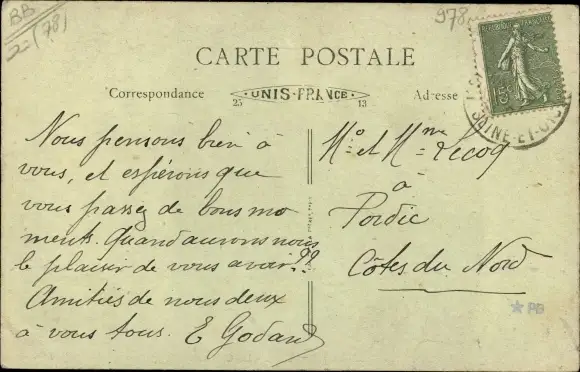 BB
2-(78)
978
CARTE POSTALE
Correspondance
UNIS-FRANCE
25 13
Adresse
REPUBLIQUE FRANÇAISE
15c
SEINE-ET-OISE
Nous pensons bien à
vous, et espérons que
vous passez de bons mo
ments. Quand aurons nous
le plaisir de vous avoir??
Amitiés de nous deux
à vous tous. E Godard
Mr et Mme Lecoq
à
Pordic
Côtes du Nord
PB